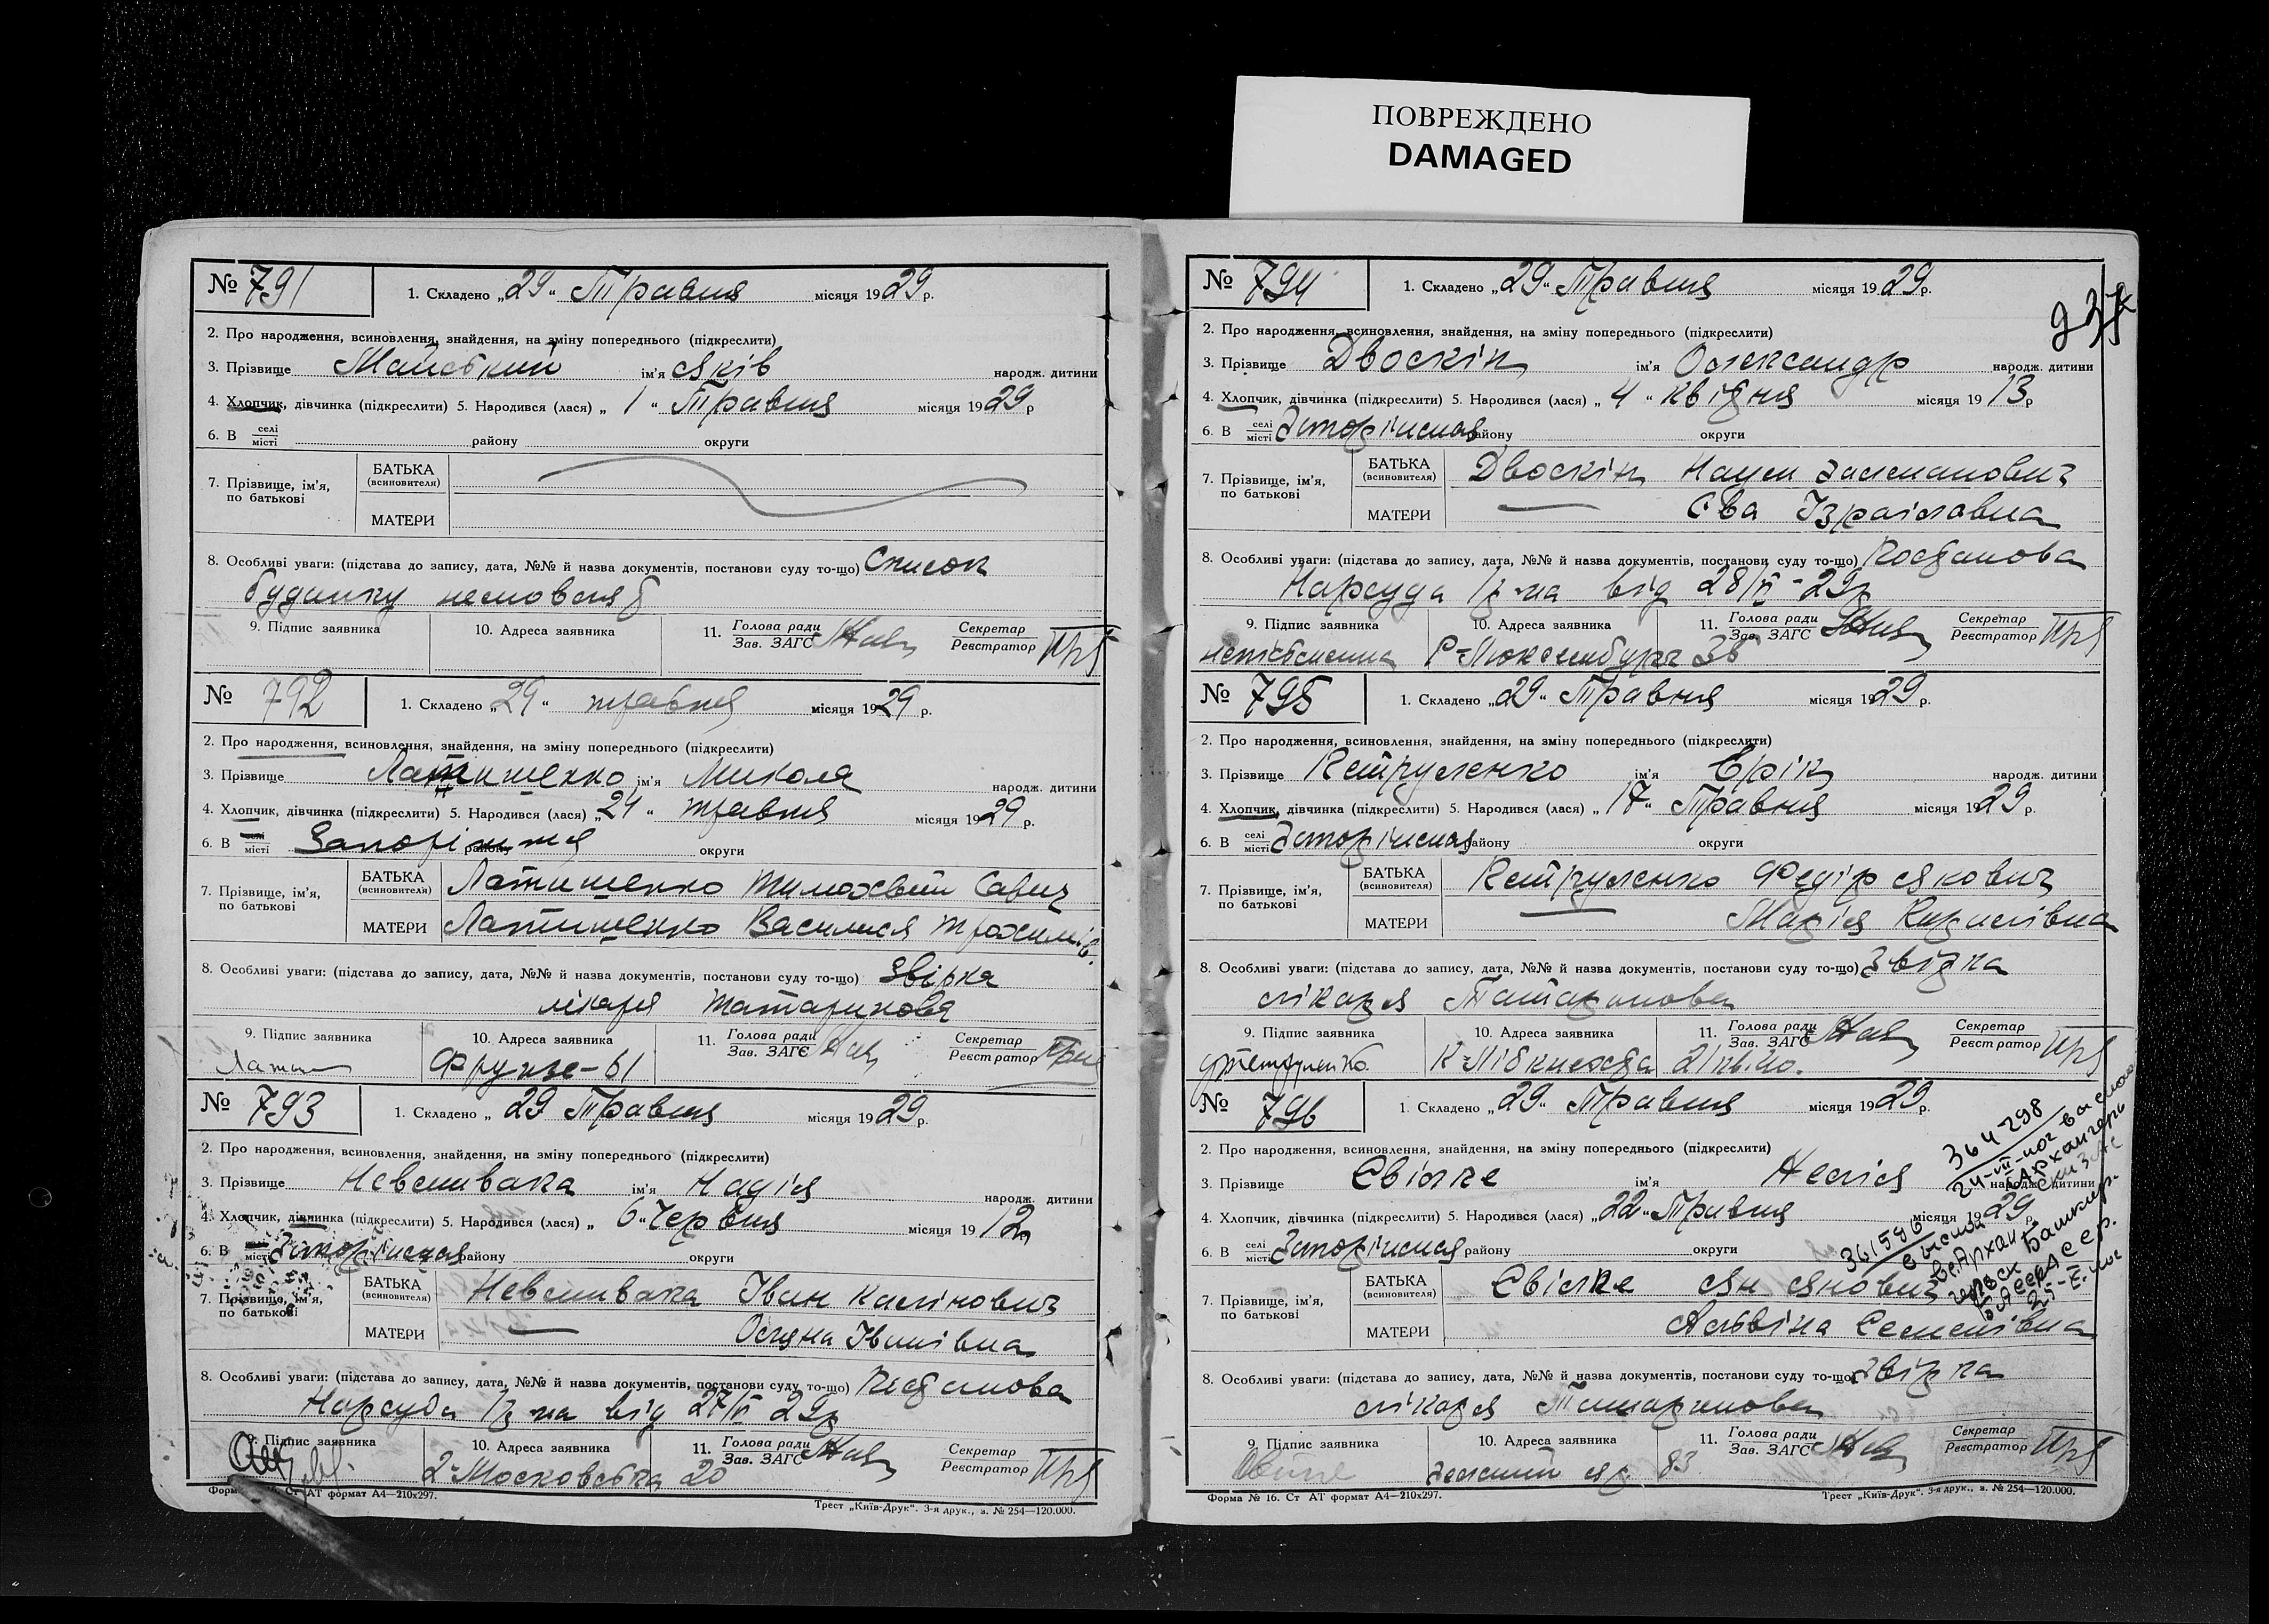 ПОВРЕЖДЕНО
DAMAGED
№ 791
1. Складено „29“ Травня місяця 1929 р.
2. Про народження, всиновлення, знайдення, на зміну попереднього (підкреслити)
3. Прізвище Майський ім'я Яків народж. дитини
4. Хлопчик, дівчинка (підкреслити) 5. Народився (лася) „1“ Травня місяця 1929 р
6. В селі місті району округи
7. Прізвище, ім'я, по батькові
БАТЬКА (всиновителя)
МАТЕРИ
8. Особливі уваги: (підстава до запису, дата, №№ й назва документів, постанови суду то-що) Список
будинку немовляб
9. Підпис заявника 10. Адреса заявника 11. Голова ради Зав. ЗАГС Секретар Реєстратор
№ 792
1. Складено „29“ травня місяця 1929 р.
2. Про народження, всиновлення, знайдення, на зміну попереднього (підкреслити)
3. Прізвище Латишенко ім'я Микола народж. дитини
4. Хлопчик, дівчинка (підкреслити) 5. Народився (лася) „24“ травня місяця 1929 р.
6. В селі місті Запоріжжя району округи
7. Прізвище, ім'я, по батькові
БАТЬКА (всиновителя) Латишенко Тимохвей Савич
МАТЕРИ Латишенко Василися Трохимів.
8. Особливі уваги: (підстава до запису, дата, №№ й назва документів, постанови суду то-що) Звірка
лікаря Татаринова
9. Підпис заявника 10. Адреса заявника 11. Голова ради Зав. ЗАГС Секретар Реєстратор
Фрунзе-61
№ 793
1. Складено „29 Травня місяця 1929 р.
2. Про народження, всиновлення, знайдення, на зміну попереднього (підкреслити)
3. Прізвище Невмивака ім'я Надія народж. дитини
4. Хлопчик, дівчинка (підкреслити) 5. Народився (лася) „6“ Червня місяця 1912
6. В місті Запоріжжя району округи
7. Прізвище, ім'я, по батькові
БАТЬКА (всиновителя) Невмивака Іван Калінович
МАТЕРИ — Оляна Іванівна
8. Особливі уваги: (підстава до запису, дата, №№ й назва документів, постанови суду то-що) Постанова
Нарсуда 1 р-на від 27/V 29р
9. Підпис заявника 10. Адреса заявника 11. Голова ради Зав. ЗАГС Секретар Реєстратор
2-Московська 20
Форма № 16. Ст АТ формат А4—210х297. Трест „Київ-Друк“. 3-я друк., з. № 254—120.000.
№ 794
1. Складено „29“ Травня місяця 1929 р.
2. Про народження, всиновлення, знайдення, на зміну попереднього (підкреслити)
3. Прізвище Двоскін ім'я Олександр народж. дитини
4. Хлопчик, дівчинка (підкреслити) 5. Народився (лася) „4“ квітня місяця 1913 р
6. В селі місті Запоріжжя району округи
7. Прізвище, ім'я, по батькові
БАТЬКА (всиновителя) Двоскін Наум Залманович
МАТЕРИ — Єва Ізраілавна
8. Особливі уваги: (підстава до запису, дата, №№ й назва документів, постанови суду то-що) Постанова
Нарсуда 1 р-на від 28/V-29р
9. Підпис заявника 10. Адреса заявника 11. Голова ради Зав. ЗАГС Секретар Реєстратор
неписьменна Р-Люксембург 38
№ 795
1. Складено „29“ Травня місяця 1929 р.
2. Про народження, всиновлення, знайдення, на зміну попереднього (підкреслити)
3. Прізвище Петруленко ім'я Ерік народж. дитини
4. Хлопчик, дівчинка (підкреслити) 5. Народився (лася) „17“ Травня місяця 1929 р.
6. В селі місті Запоріжжя району округи
7. Прізвище, ім'я, по батькові
БАТЬКА (всиновителя) Петруленко Федір Якович
МАТЕРИ — Марія Кирилівна
8. Особливі уваги: (підстава до запису, дата, №№ й назва документів, постанови суду то-що) Звірка
лікаря Татаринова
9. Підпис заявника 10. Адреса заявника 11. Голова ради Зав. ЗАГС Секретар Реєстратор
ФПетруленко. К-Лібкнехта 21 кв. 40.
№ 796
1. Складено „29“ Травня місяця 1929 р.
2. Про народження, всиновлення, знайдення, на зміну попереднього (підкреслити)
3. Прізвище Євілке ім'я Неля народж. дитини
4. Хлопчик, дівчинка (підкреслити) 5. Народився (лася) „22“ Травня місяця 1929
6. В селі місті Запоріжжя району округи
364298
361596
7. Прізвище, ім'я, по батькові
БАТЬКА (всиновителя) Євілке Ян Янович
МАТЕРИ Альвіна Семенівна
8. Особливі уваги: (підстава до запису, дата, №№ й назва документів, постанови суду то-що) Звірка
лікаря Татаринова
9. Підпис заявника 10. Адреса заявника 11. Голова ради Зав. ЗАГС Секретар Реєстратор
83
Форма № 16. Ст АТ формат А4—210х297. Трест „Київ-Друк“. 3-я друк., з. № 254—120.000.